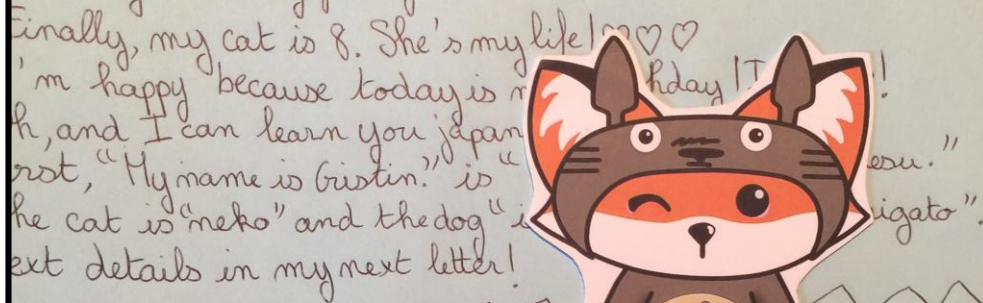 Finally, my cat is 8. She's my life! ♡♡♡
'm happy because today is hday !
h, and I can learn you japan
rst, "My name is Cristin." is " esu."
he cat is "neko" and the dog " igato".
ext details in my next letter!